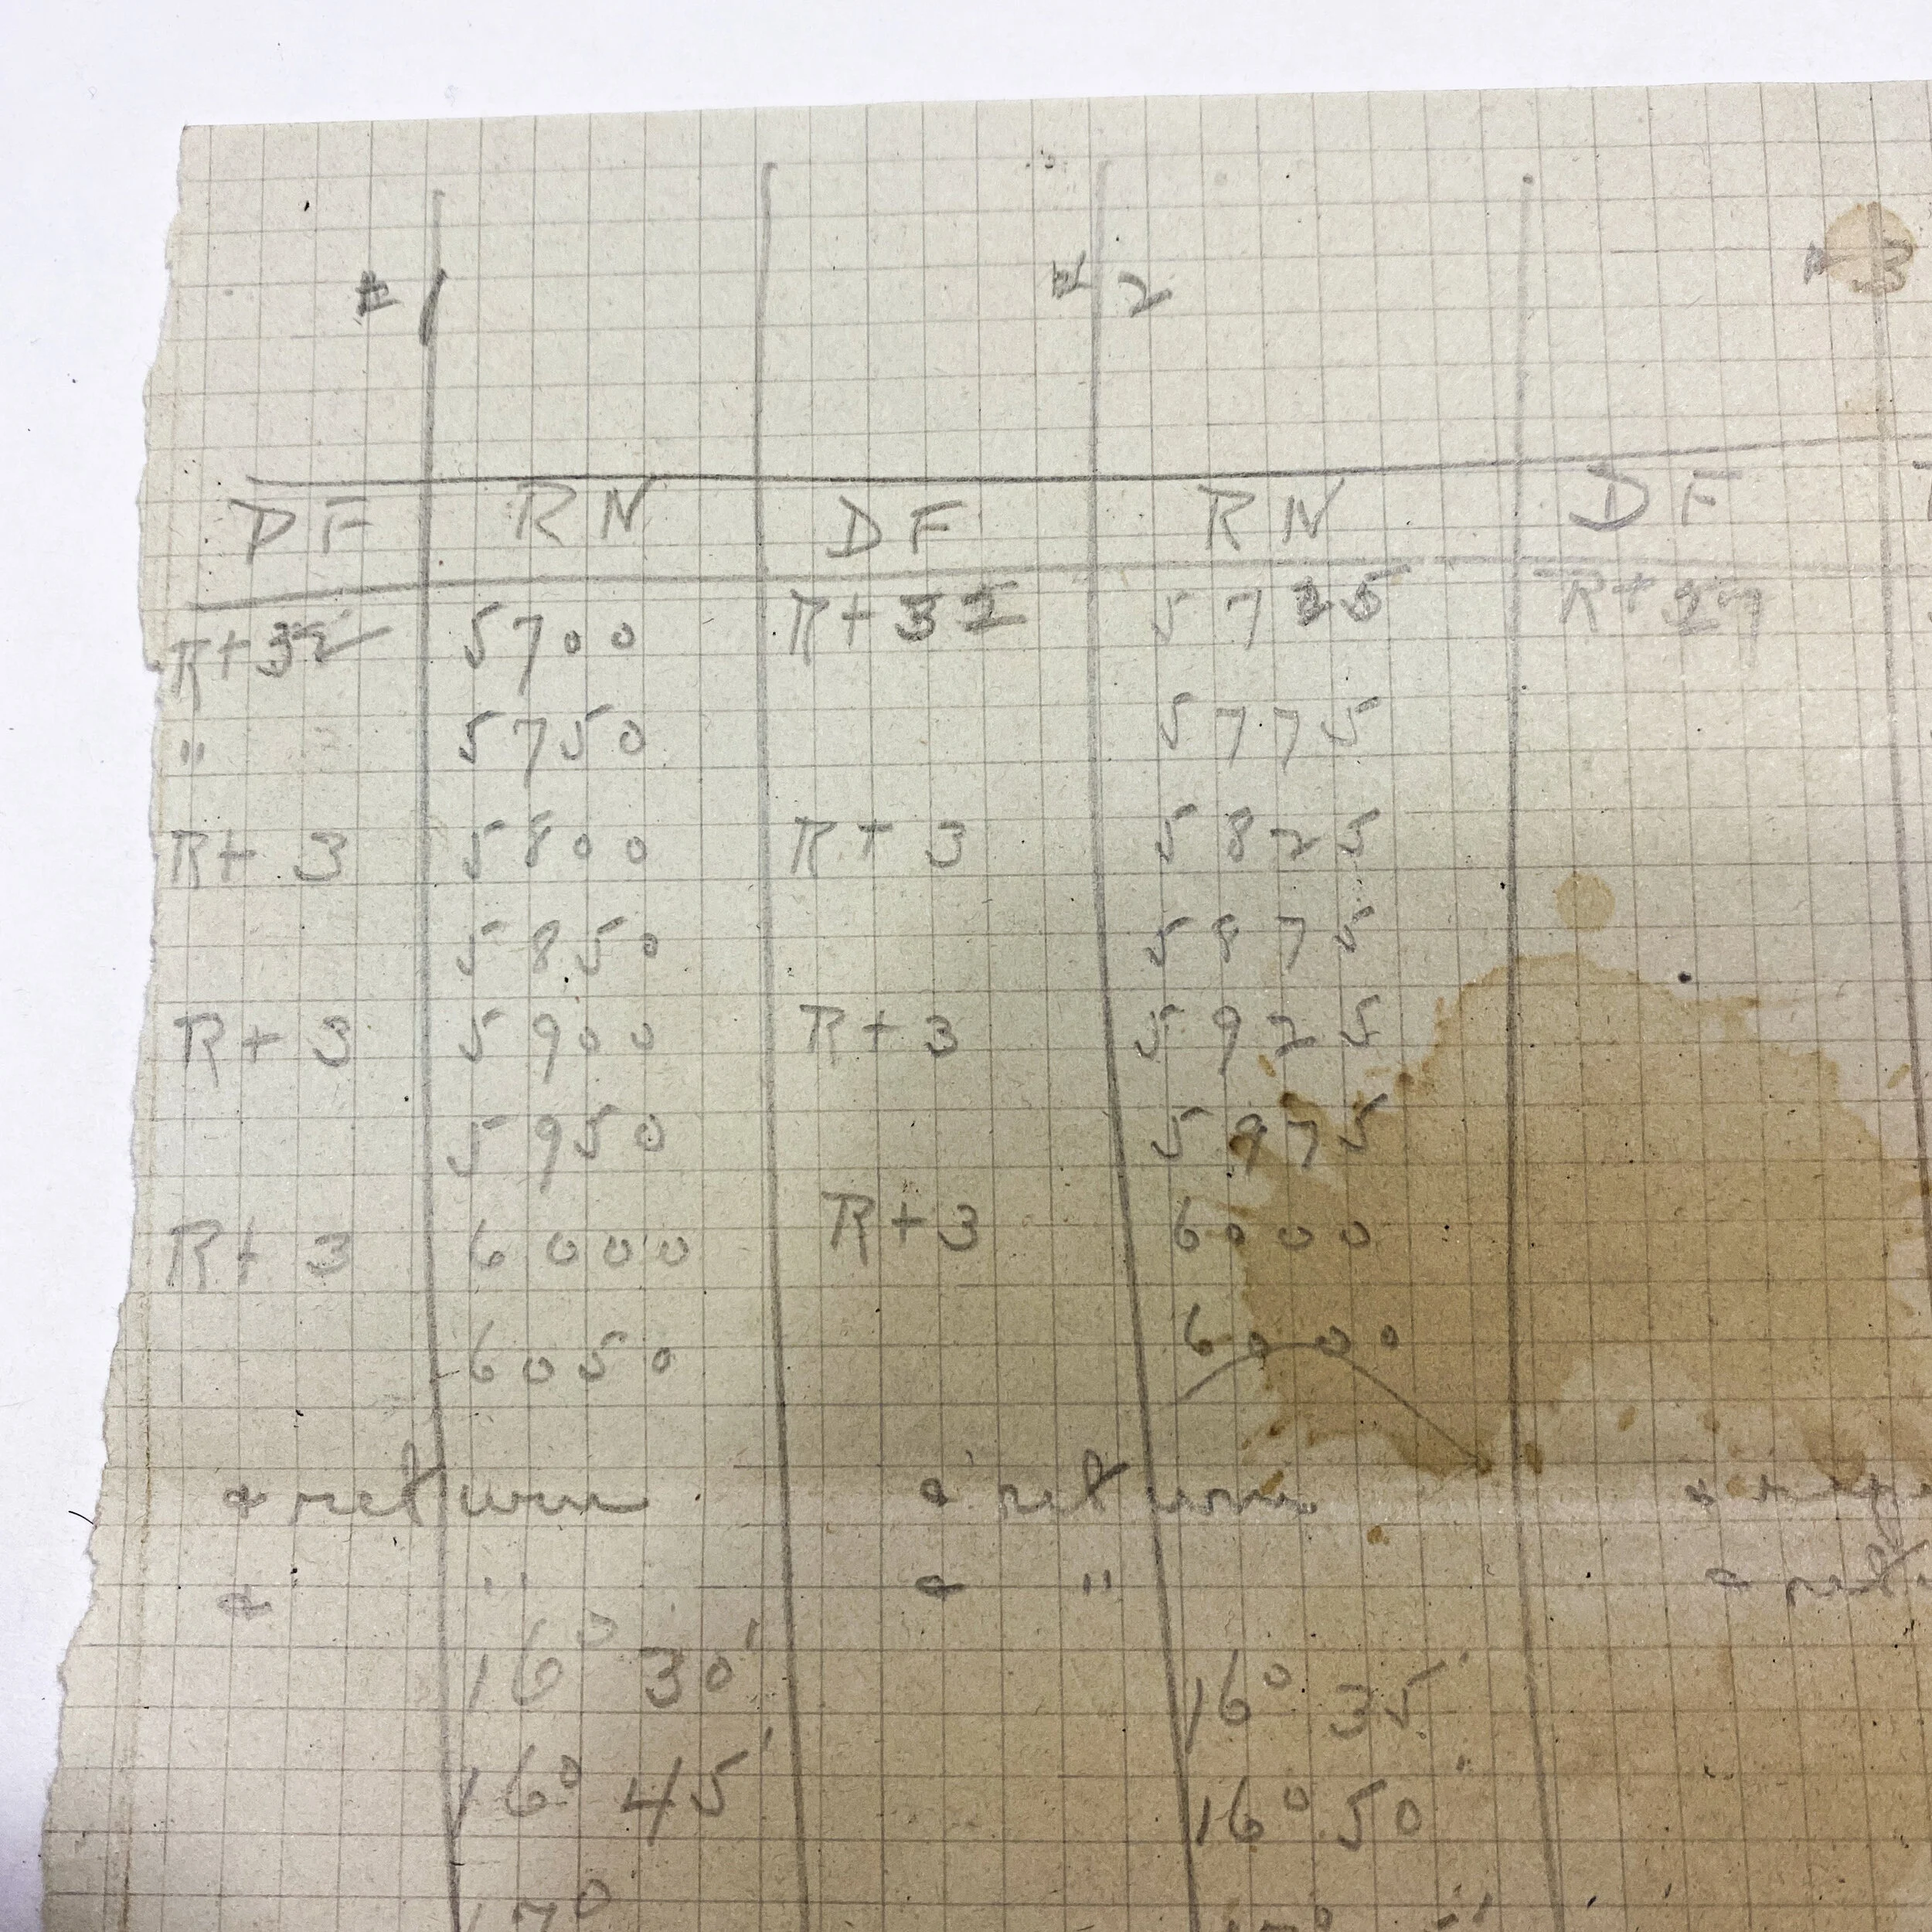 # 1 # 2 # 3
DF RN DF RN DF
R+32 5700 R+32 5725 R+27
" 5750 5775
R+3 5800 R+3 5825
5850 5875
R+3 5900 R+3 5925
5950 5975
R+3 6000 R+3 6000
6050 6000
& return & return &
& " & " & ret
16° 30' 16° 35'
16° 45' 16° 50'
17°